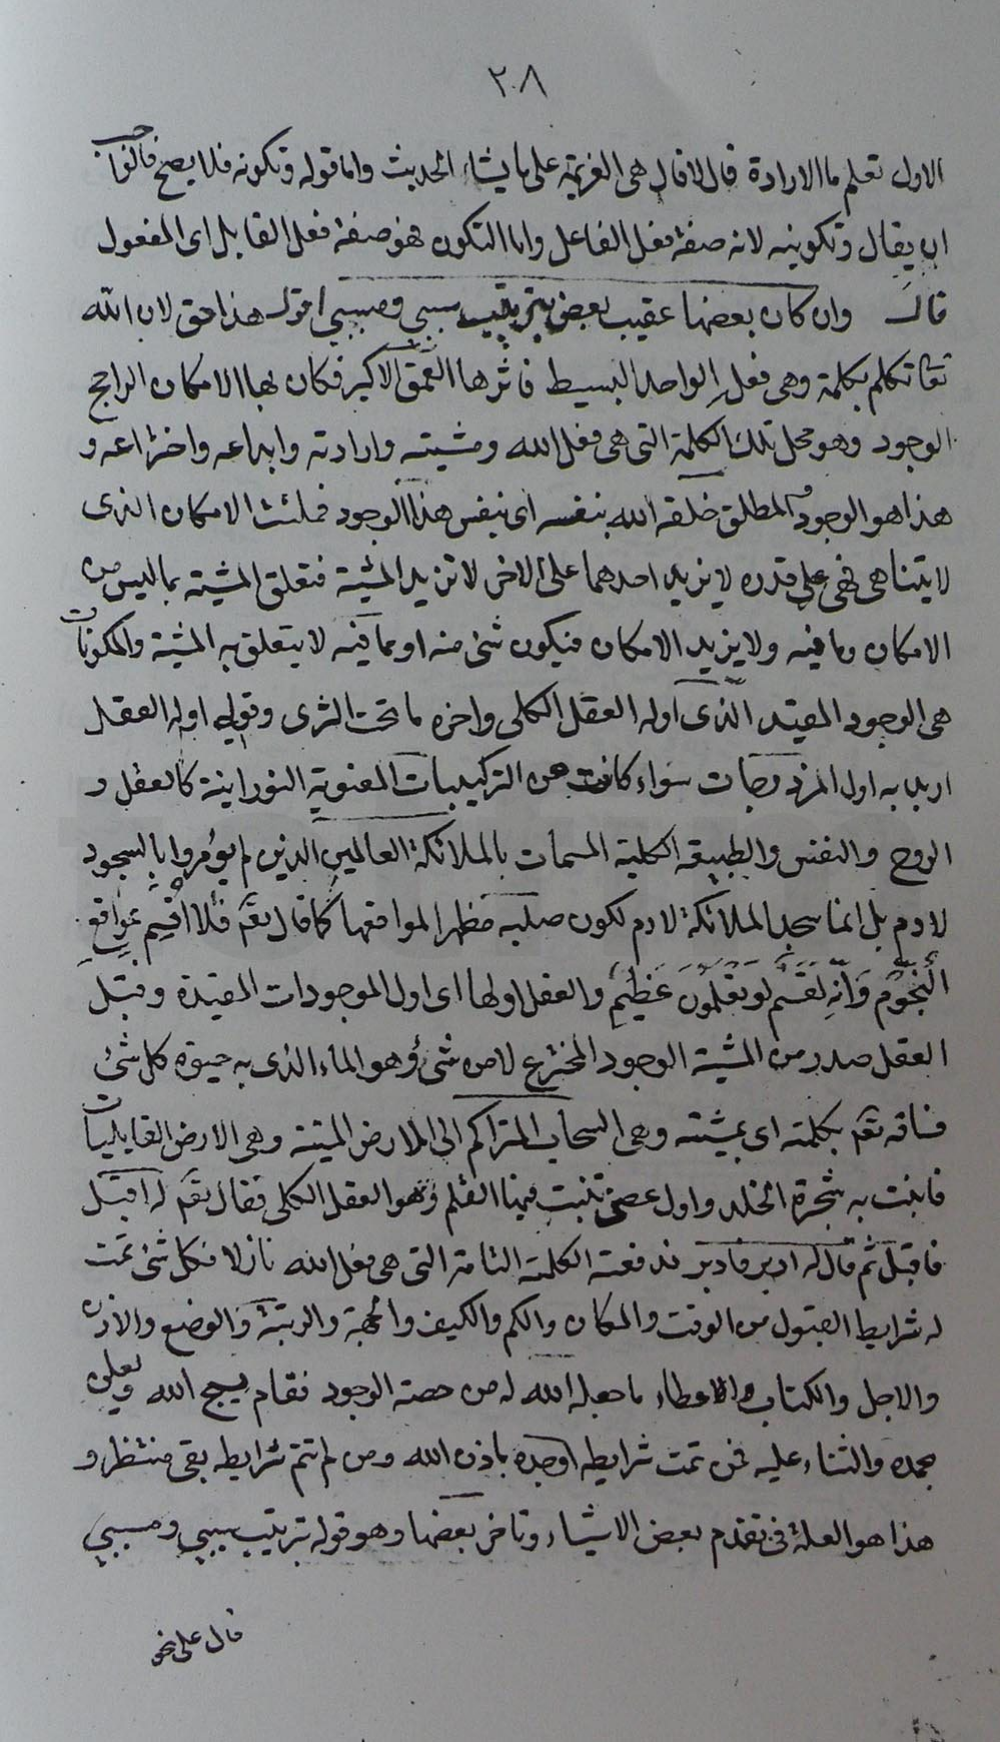 ٢٠٨
الاول تعلم ما الارادة قال لا قال هى العزيمة على ما يشاء الحديث واما قوله وتكونه فلا يصح فالصواب
ان يقال وتكوينه لانه صفة فعل الفاعل واما التكون فهو صفة فعل القابل اى المفعول
قال وان كان بعضها عقيب بعض بترتيب سببى ومسببى اقول هذا حق لان الله
تعا تكلم بكلمة وهى فعل الواحد البسيط فاثرها العمق الاكبر فكان بها الامكان الراجح
الوجود وهو محل تلك الكلمة التى هى فعل الله ومشيته وارادته وابداعه واختراعه و
هذا هو الوجود المطلق خلقه الله بنفسه اى بنفس هذا الوجود فملئت الامكان الذى
لا يتناهى فهى على قدره لا يزيد احدهما على الاخر لا تزيد المشية فتعلق المشية بما ليس من
الامكان وما فيه ولا يزيد الامكان فيكون شئ منه او مما فيه لا يتعلق به المشية والمكونات
هى الوجود المقيد الذى اوله العقل الكلى واخره ما تحت الثرى وقولى اوله العقل
اريد به اول المزدوجات سواء كانت من التركيبات المعنوية النورانية كالعقل و
الروح والنفس والطبيعة الكلية المسمات بالملائكة العالين الذين لم يؤمروا بالسجود
لادم بل انما سجد الملائكة لادم لكون صلبه مظهرا لمواقعها كما قال تعم فلا اقسم بمواقع
النجوم وانه لقسم لو تعلمون عظيم والعقل اولها اى اول الموجودات المقيدة وقبل
العقل صدر من المشية الوجود المخترع لا من شئ وهو الماء الذى به حيوة كل شئ
فساقه تعم بكلمته اى بمشيته وهى السحاب المتراكم الى الارض الميتة وهى الارض القابليات
فانبت به شجرة الخلد واول غصن تنبت فيها القلم وهو العقل الكلى فقال تعم له اقبل
فاقبل ثم قال له ادبر فادبر فدفعته الكلمة التامة التى هى فعل الله نازلا فكل شئ تمت
له شرايط القبول من الوقت والمكان والكم والكيف والجهة والرتبة والوضع والاذن
والاجل والكتاب والاعطاء ما جعله الله له من حصة الوجود فقام يسبح الله ويعلن
بحمده والثناء عليه فمن تمت شرايطه اوجده باذن الله ومن لم تتم شرايطه بقى منتظر و
هذا هو العلة فى تقدم بعض الاشياء وتاخر بعضها وهو قوله بترتيب سببى ومسببى
قال على نحو